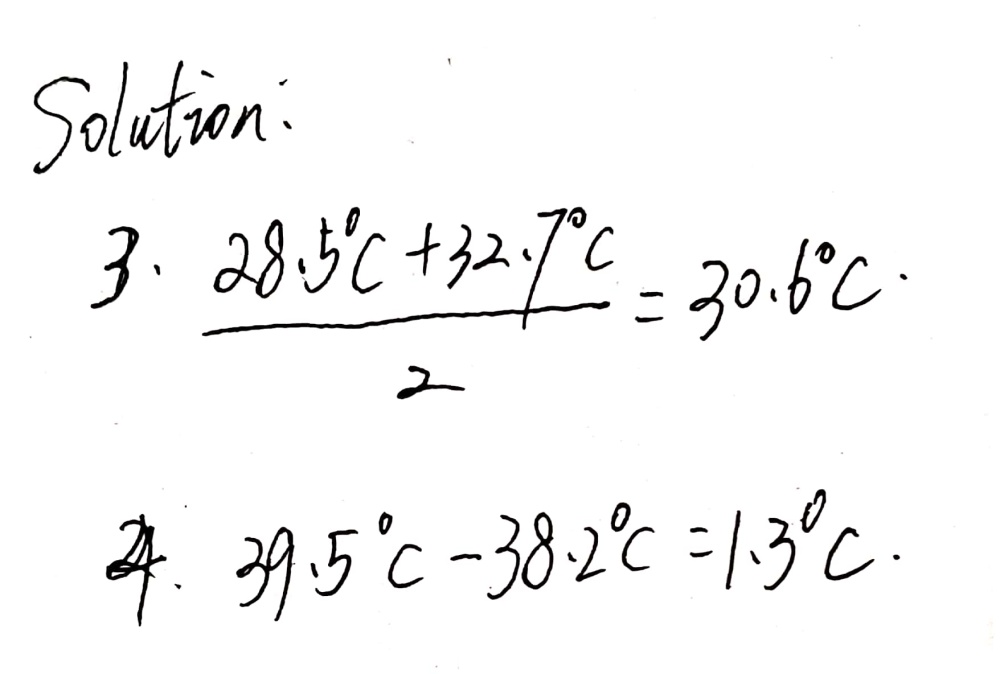 Solution:
3. 28.5°C + 32.7°C
= 30.6°C.
2
4. 39.5°C - 38.2°C = 1.3°C.